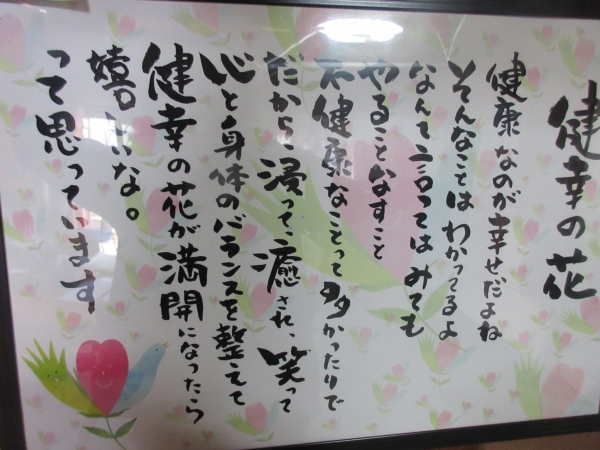 健幸の花
健康なのが幸せだよね
そんなことはわかってるよ
なんて言ってはみても
やることなすこと
不健康なことって多かったりで
だから浸って、癒され、笑って
心と身体のバランスを整えて
健幸の花が満開になったら
嬉しいな。
って思っています